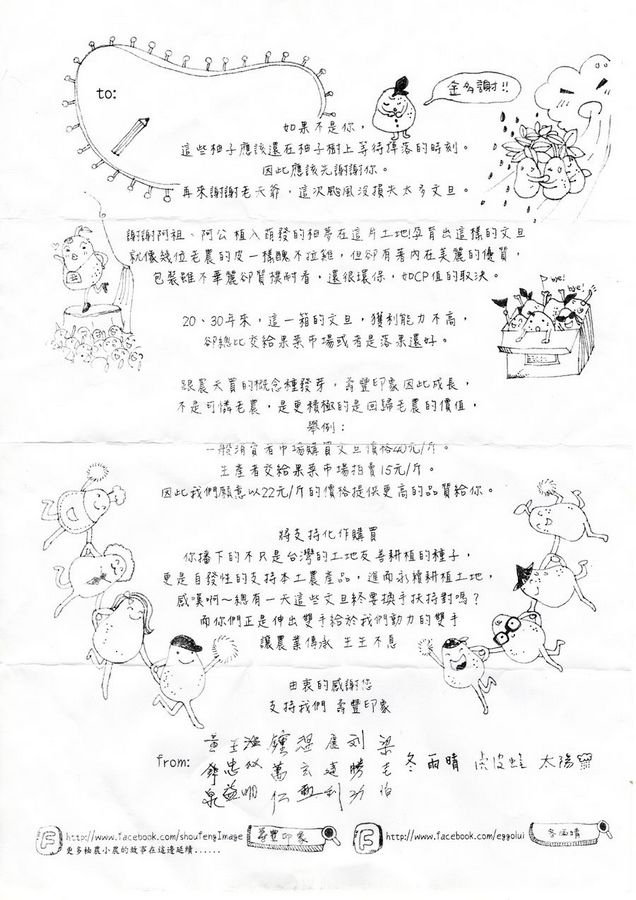 to:
金多謝!!
如果不是你，
這些柚子應該還在柚子樹上等待掉落的時刻。
因此應該先謝謝你。
再來謝謝老天爺，這次颱風沒損失太多文旦。
謝謝阿祖、阿公植入萌發的柚夢在這片土地!孕育出這樣的文旦
就像幾位老農的皮一樣醜不拉雞，但卻有著內在美麗的優質，
包裝雖不華麗卻質樸耐看，還很環保，如CP值的取決。
bye!
bye!
20、30年來，這一箱的文旦，獲利能力不高，
卻總比交給果菜市場或者是落果還好。
跟農夫買的概念種發芽，壽豐印象因此成長，
不是可憐老農，是更積極的是回歸老農的價值，
舉例：
一般消費者市場購買文旦價格40元/斤。
生產者交給果菜市場拍賣15元/斤。
因此我們願意以22元/斤的價格提供更高的品質給你。
將支持化作購買
你播下的不只是台灣的土地友善耕植的種子，
更是自發性的支持本土農產品，進而永續耕植土地，
感嘆啊～總有一天這些文旦終要換手扶持對嗎？
而你們正是伸出雙手給於我們動力的雙手
讓農業傳承 生生不息
由衷的感謝您
支持我們 壽豐印象
from:
冬雨晴 虎皮蛙 太陽
http://www.facebook.com/shoufengImage
壽豐印象
更多柚農小農的故事在這邊延續......
http://www.facebook.com/eggolui
冬雨晴